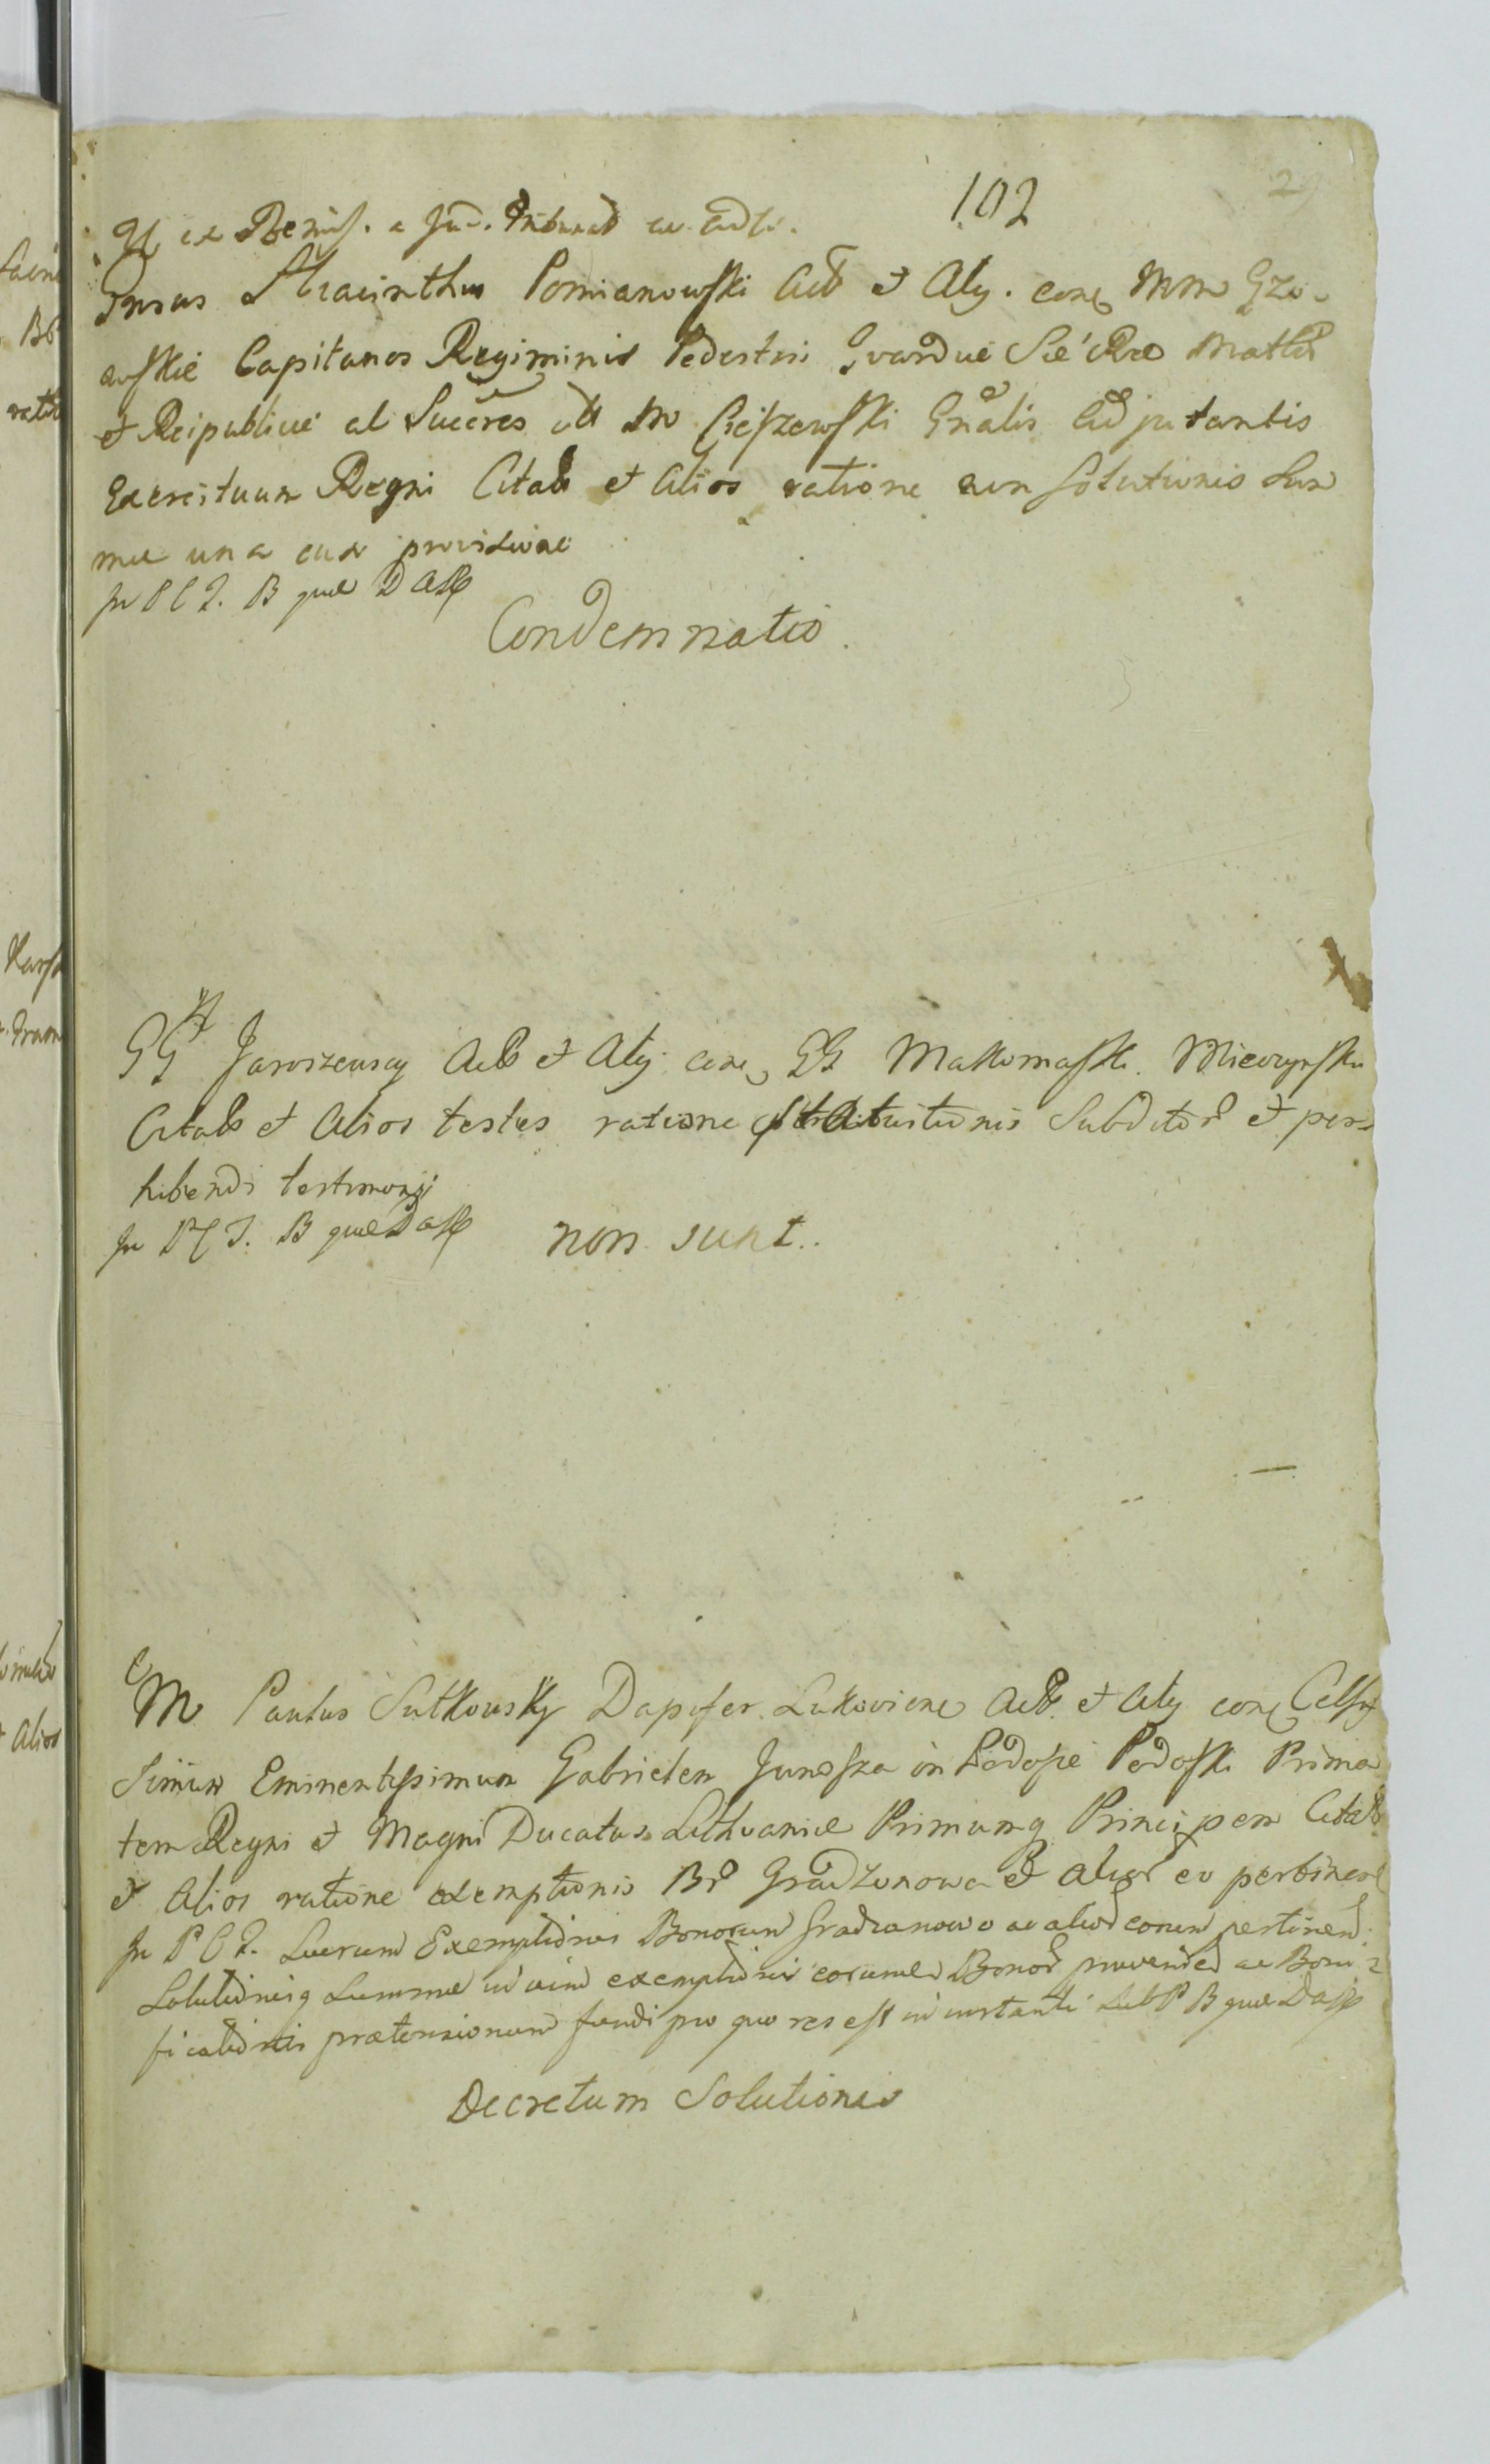 102
29
ex Remiss. a Jud. Tribunal
Hiacinthus Pomianowski Act et Alij. conq Mm Gzo-
owskie Capitanos Regiminis Pedestri Gvardiae Sae Rae Mattis
et Reipublicae al Succres M Cieszewski Gnalis Adjutantis
Exercituum Regni Citatt et Alios ratione non Solutionis Sum
mae una cum provisione
In PCT. B quae Dasse
Condemnatio.
GG Jarvszenscy Actt et Alij conq GG Makomaski Mieczynski
Citatt et Alios testes ratione Subditor et per
hibendi testimonij
In PCT. B quae Dasse non sunt.
M Paulus Sutkowsky Dapifer Lukoviens Act. et Alij conq Celsis
simum Eminentissimum Gabrielem Junosza in Podosie Podoski Prima
tem Regni et Magni Ducatus Lithvaniae Primumq Principem Citatt
et Alios ratione exemptionis Br Gradzanowa et alior eo pertinen
In PCT. Luerum Exemptionis Bonorum Gradzanowo ac alior eorum pertinen
Solutionisq Summae in vim exemptionis eorumd Bonor provenien ac Boni
ficationis praetensionum fundi pro quo res est in instanti Sub P B quae Dasse
Decretum Solutionis